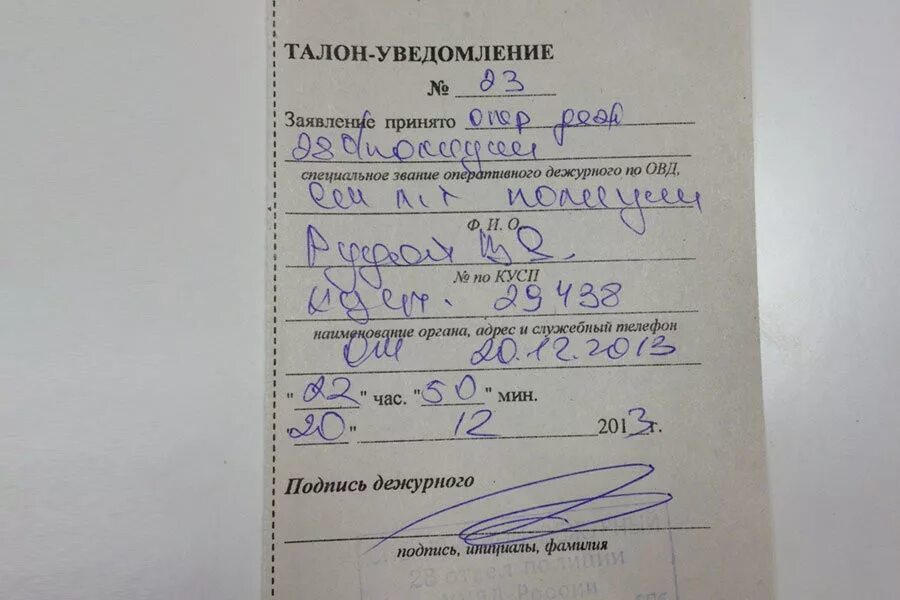 ТАЛОН-УВЕДОМЛЕНИЕ
№ 23
Заявление принято опер деж
28 о/полиции
специальное звание оперативного дежурного по ОВД,
полиции
Ф. И. О.
№ по КУСП
29438
наименование органа, адрес и служебный телефон
от 20.12.2013
"22" час. "50" мин.
"20" 12 2013 г.
Подпись дежурного
подпись, инициалы, фамилия
28 отдел полиции
России